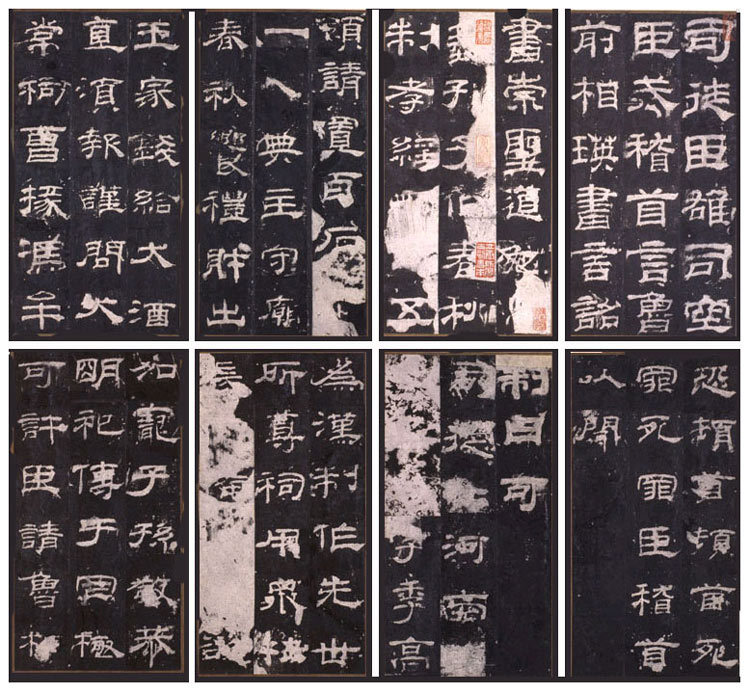 司徒臣雄司空
臣戒稽首言魯
前相瑛書言詔
書崇聖道勉
藝孔子作春秋
制孝經五
領請置百石
一人典主守廟
春秋饗禮財出
王家錢給大酒
直須報謹問大
常祠曹掾馮牟
恐頓首頓首死
罪死罪臣稽首
以聞
制曰可
司徒公河南
字季高
為漢制作先世
所尊祠用眾牲
長
加寵子孫敬恭
明祀傳于罔極
可許臣請魯相